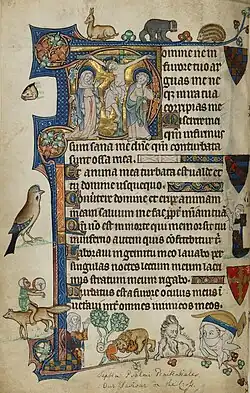 Domine ne in
furore tuo ar
guas me ne
q; in ira tua
corripias me
Miserere
qm infirmus
sum sana me dne qm conturbata
sunt ossa mea.
Et anima mea turbata est valde et
tu domine usquequo.
Convertere domine et eripe animam
meam salvum me fac
est in morte qui memor sit tui
in inferno autem quis confitebitur t
Laboravi in gemitu meo lavabo per
singulas noctes lectum meum lacri
mis stratum meum rigabo
Turbatus est a furore oculus meus i
veteravi inter omnes inimicos meos
Septem Psalmi Penitentiales
Our Saviour on the Cross.